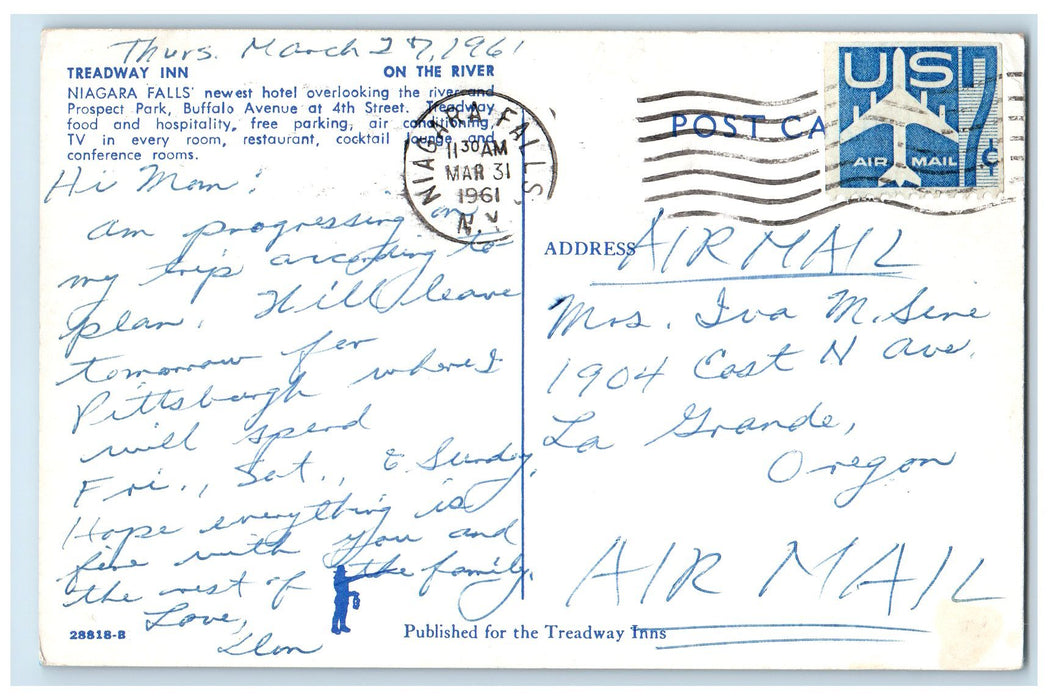 Thurs. March 27, 1961
TREADWAY INN ON THE RIVER
NIAGARA FALLS' newest hotel overlooking the river and
Prospect Park, Buffalo Avenue at 4th Street. Treadway
food and hospitality, free parking, air conditioning,
TV in every room, restaurant, cocktail lounge and
conference rooms.
Hi Mom!
Am progressing on
my trip according to
plan. Will leave
tomorrow for
Pittsburgh where I
will spend
Fri., Sat., & Sunday.
Hope everything is
fine with you and
the rest of the family.
Love,
28818-B
Published for the Treadway Inns
NIAGARA FALLS
11 30 AM
MAR 31
1961
N.Y.
POST CA
US 7¢
AIR MAIL
ADDRESS
AIR MAIL
Mrs. Iva M. Sene
1904 East N Ave.
La Grande,
Oregon
AIR MAIL